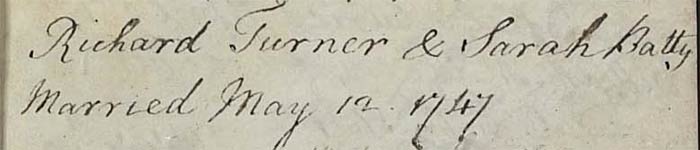 Richard Turner & Sarah Batty
Married May 12. 1747